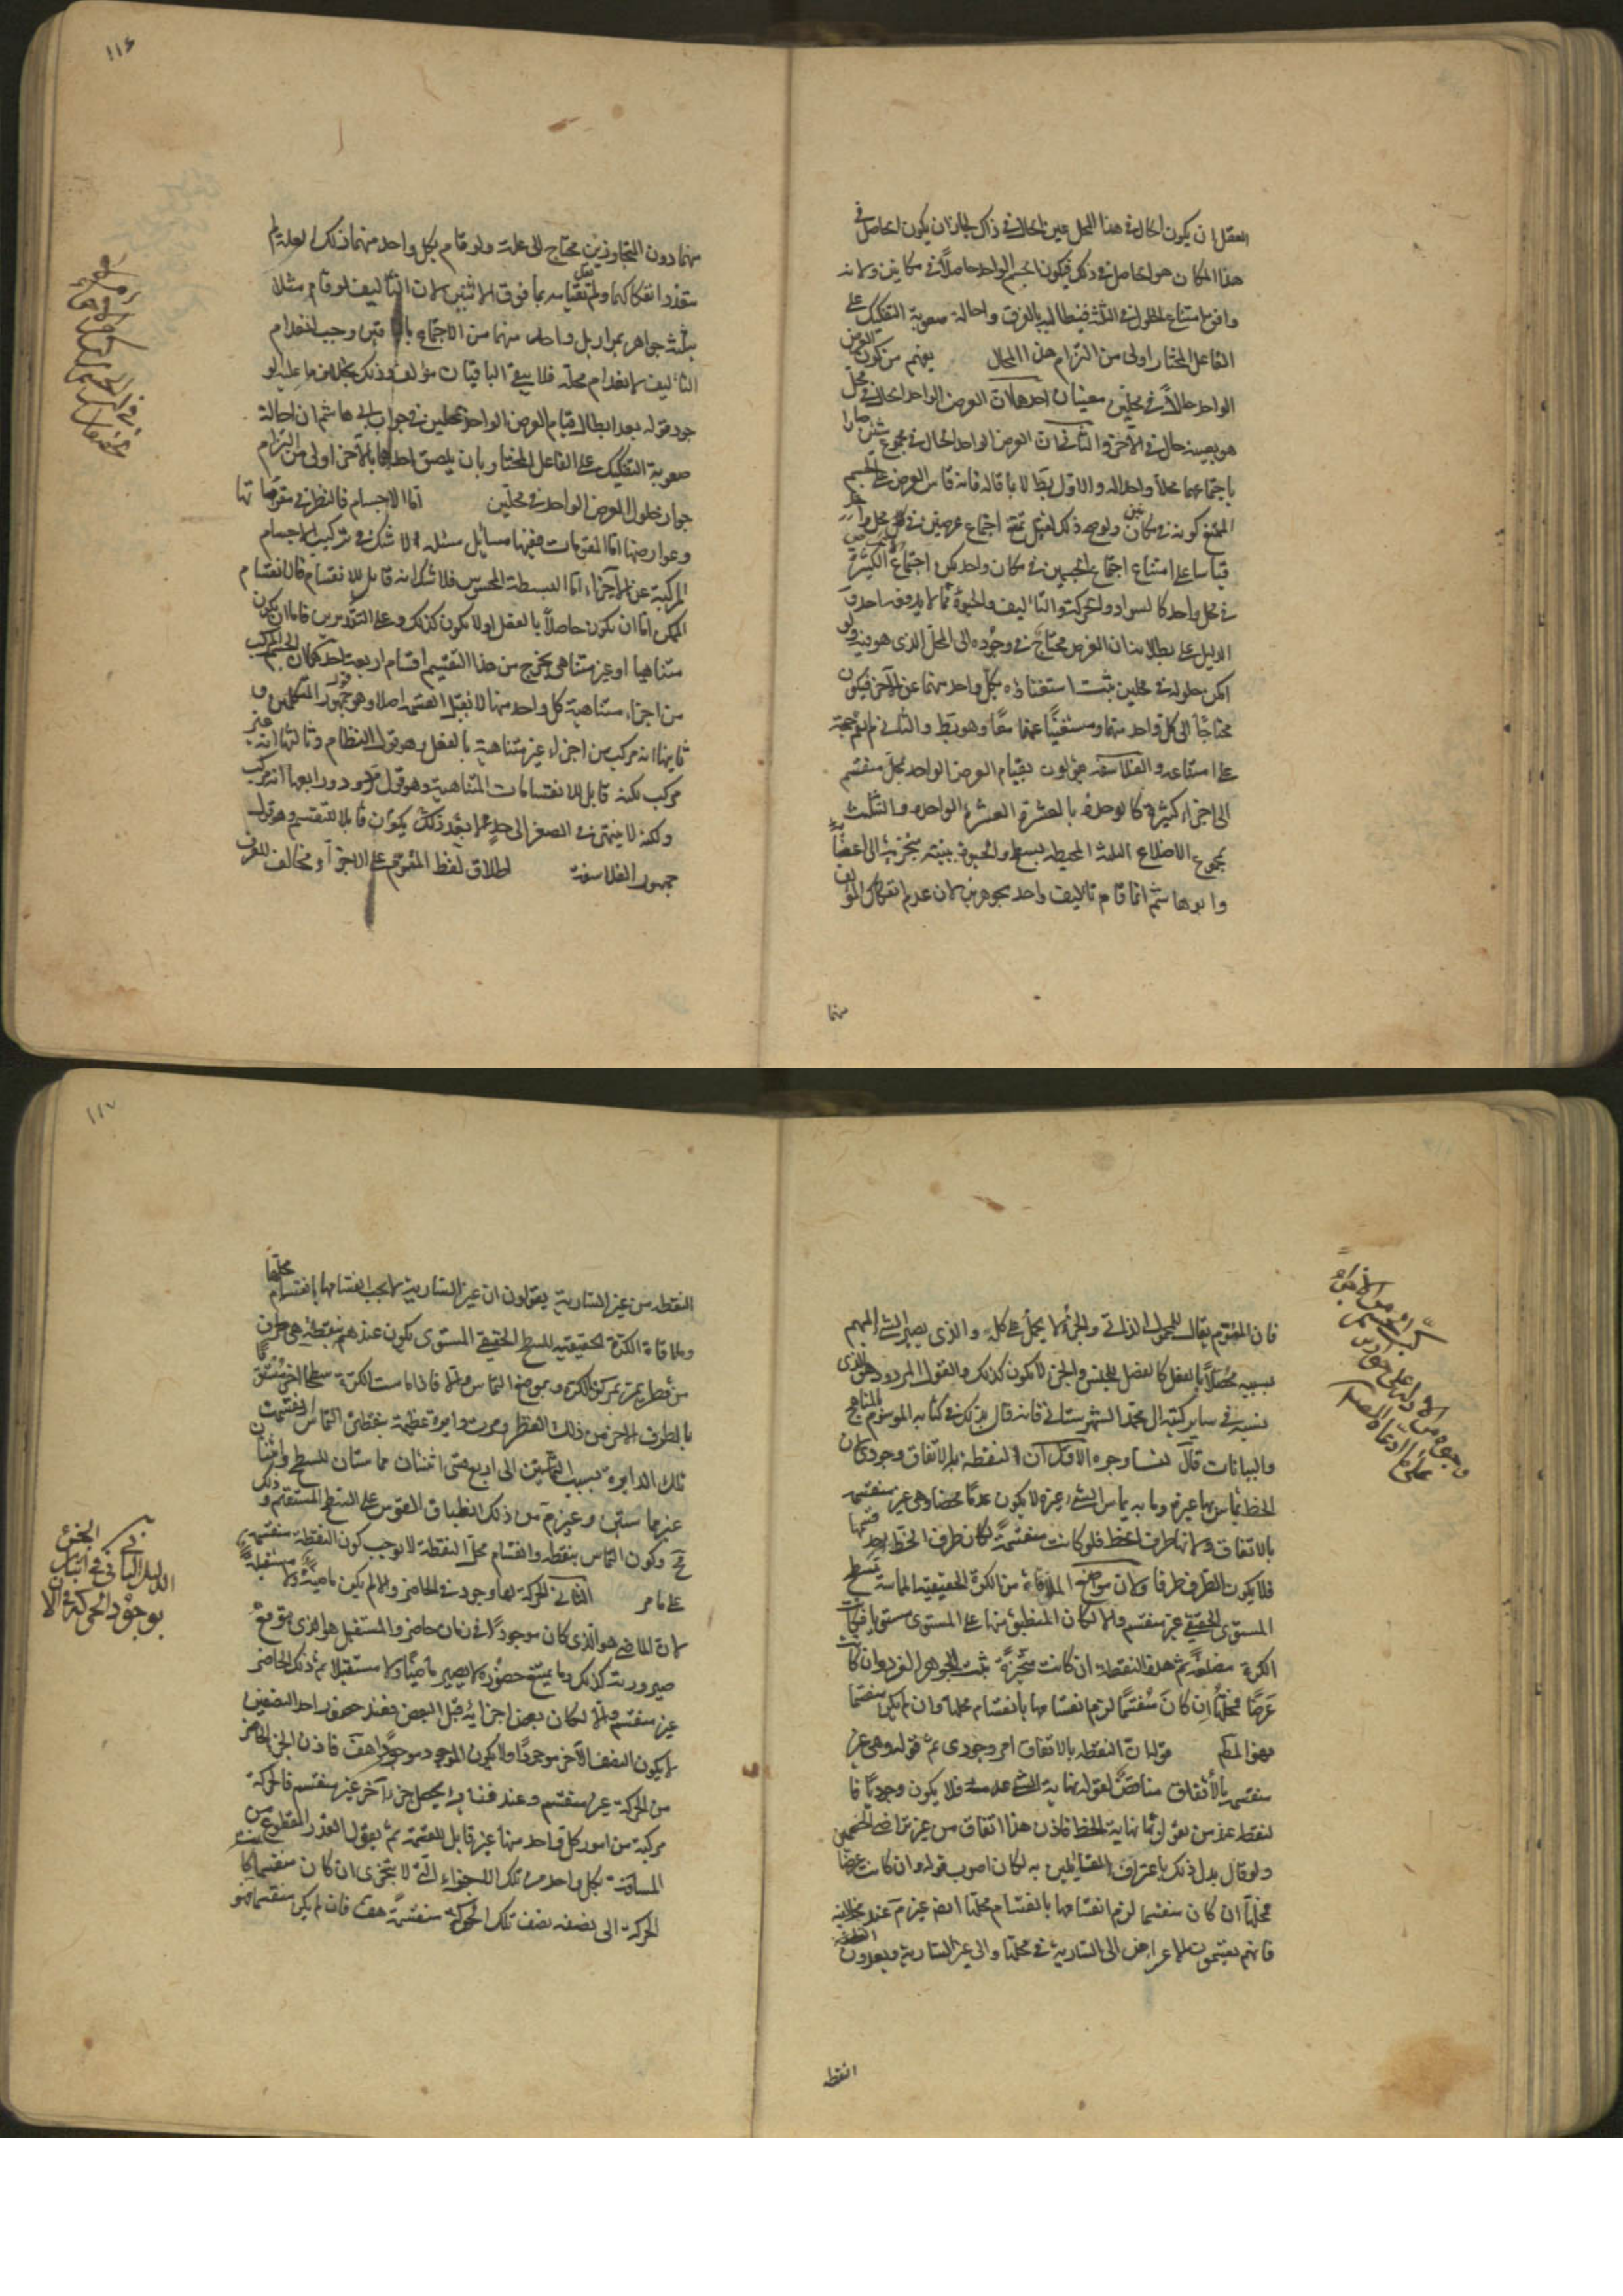 العقل ان يكون الحال في هذا المحل عين الحال في ذلك لجاز ان يكون الحاصل في
هذا المكان هو الحاصل في ذلك فيكون الجسم الواحد حاصلاً في مكانين ولانه
وافق امتناع الحلول في الثلثة فيطالب بالفرق واحالة صعوبة التفكيك على
الفاعل المختار اولى من التزام هذا المحال يفهم من كون العرض
الواحد حالاً في محلين معنيان احدهما ان العرض الواحد الحال في محل
هو بعينه حال في الآخر والثاني ان العرض الواحد الحال في مجموع شيئين صارا
باجتماعهما محلاً واحداً له والاول بط لا بما قاله فانه قاس العرض على الجسم
الممتنع كونه في مكانين ولو صح ذلك لقيل يمتنع اجتماع عرضين في محل واحد
قياسا على امتناع اجتماع الجسمين في مكان واحد لكن اجتماع الاعراض الكثيرة
في محل واحد كالسواد والحركة والتأليف والحيوة مما لا يدفعه احد و
الدليل على بطلانه ان العرض محتاج في وجوده الى المحل الذي هو فيه ولو
امكن حلوله في محلين يثبت استغناؤه بكل واحد منهما عن الآخر فيكون
محتاجاً الى كل واحد منهما ومستغنياً عنهما معاً وهو بط والثاني لم يقم حجة
على امتناعه والفلاسفة يقولون بقيام العرض الواحد بمحل منقسم
الى اجزاء كثيرة كالوحدة بالعشرة الواحدة والتثليث
بمجموع الاضلاع الثلثة المحيطة بسطح والحيوة ببنية متجزية الى اعضاء
وابو هاشم انما قام تاليف واحد بجوهرين لان عدم انفكاك المؤلف
منهما
١١٦
منهما دون المتجاورين محتاج الى علة ولو قام بكل واحد منهما تلك العلة لم
يتعذر انفكاكهما ولم يقل بقيامه بما فوق الاثنين لان التأليف لو قام مثلا
بثلثة جواهر ثم ازيل واحد منها من الاجتماع بالباقيين وجب انعدام
التأليف لانعدام محله فلا يبقى الباقيان مؤلفين وذلك بخلاف ما عليه الو
جود قوله بعد ابطال قيام العرض الواحد بمحلين في جواب ابي هاشم ان احالة
صعوبة التفكيك على الفاعل المختار بان يلصق احدهما بالآخر اولى من التزام
جواز حلول العرض الواحد في محلين اما الاجسام فالنظر في مقوماتها
وعوارضها اما المقومات ففيها مسايل مسئلة لا شك في تركيب الاجسام
المركبة عن الاجزاء اما البسيطة المحسوس فلا شك انه قابل للانقسام فالانقسام
الممكن اما ان يكون حاصلاً بالفعل او لا يكون كذلك وعلى التقديرين فاما ان يكون
متناهيا او غير متناهي يخرج من هذا التقسيم اقسام اربعة احدها ان الجسم مركب
من اجزاء متناهية كل واحد منها لا يقبل القسمة اصلا وهو قول جمهور المتكلمين و
ثانيها انه مركب من اجزاء غير متناهية بالفعل وهو قول النظام وثالثها انه غير
مركب لكنه قابل للانقسامات المتناهية وهو قول مردود ورابعها انه غير مركب
ولكنه لا ينتهي في الصغر الى حد الا وبعد ذلك يكون قابلا للتقسيم وهو قول
جمهور الفلاسفة اطلاق لفظ المقوم على الاجزاء مخالف للعرف
فان المقوم يقال للمحمول الذاتي والجزء لا يحمل على كله والذي يصير الشيء المبهم
بسببه محصلاً بالفعل كالفصل للجنس والجزء لا يكون كذلك والقول المردود هو الذي
ينسبه في ساير كتبه الى محمد الشهرستاني فانه قال بذلك في كتابه الموسوم بالمناهج
والبيانات قال لنا وجوه الاول ان النقطة بالاتفاق وجودي لان
الخط يماس بها غيره وما به يماس الشيء غيره لا يكون عدماً محضا وهي غير منقسمة
بالاتفاق ولانها طرف الخط فلو كانت منقسمة لكان طرف الخط احد قسميها
فلا يكون الطرف طرفا ولان موضع الملاقاة من الكرة الحقيقية المماسة بسطح
المستوي الحقيقي غير منقسم والا لكان المنطبق منها على المستوي مستويا فكانت
الكرة مضلعة ثم هذه النقطة ان كانت متحيزة ثبت الجوهر الفرد وان كانت
عرضاً فمحلها ان كان منقسماً لزم انقسامها بانقسام محلها وان لم يكن منقسما
فهو المط قوله ان النقطة بالاتفاق امر وجودي ثم قوله وهي غير
منقسمة بالاتفاق مناقض لقوله نهاية الشيء عدمه فلا يكون وجودياً فا
لنقطة عند من يقول انها نهاية الخط فاذن هذا اتفاق من غير تراضي الخصمين
ولو قال بدل ذلك باعتراف القائلين به لكان اصوب قوله وان كانت عرضا
فمحلها ان كان منقسما لزم انقسامها بانقسام محلها ايضا غير لازم عند مخالفيه
فانهم يقسمون الاعراض الى السارية في محلها والى غير السارية ويعدون النقطة
النقطة
الدليل الثاني في اثبات الجزء
بوجود الحركة في الآن
١١٧
النقطة من غير السارية يقولون ان غير السارية لا يجب انقسامها بانقسام محلها
وملاقاة الكرة الحقيقية للسطح الحقيقي المستوي يكون عندهم بنقطة هي طرف
من قطر يمر بمركز الكرة وبموضع التماس
بالطرف الآخر من ذلك القطر ومرت دايرة عظيمة بنقطتي التماس انقسمت
تلك الدايرة بسبب التماسين الى اربع قسي اثنتان مماستان للسطح واثنتان
غير مماستين وغير لازم من ذلك انطباق القوس على السطح المستقيم و
ح وكون التماس بنقطة وانقسام محل النقطة لا يوجب كون النقطة منقسمة
على ما مر الثاني الحركة لها وجود في الحاضر والا لم يكن ماضية ولا مستقبلة
لان الماضي هو الذي كان موجودا في زمان حاضر والمستقبل هو الذي يتوقع
صيرورته كذلك وما يمتنع حضوره لا يصير ماضيا ولا مستقبلا ثم ذلك الحاضر
غير منقسم والا لكان بعض اجزائه قبل البعض فعند حضور احد النصفين
لا يكون النصف الآخر موجودًا ولا يكون الموجود موجوداً هف فاذن الجزء الحاضر
من الحركة غير منقسم وعند فنائه يحصل جزء آخر غير منقسم فالحركة
مركبة من امور كل واحد منها غير قابل للقسمة ثم يقول القدر المقطوع من
المسافة بكل واحد من تلك الاجزاء التي لا يتجزى ان كان منقسما كانت
الحركة الى نصفه نصف تلك الحركة منقسمة هف فان لم يكن منقسما فهو